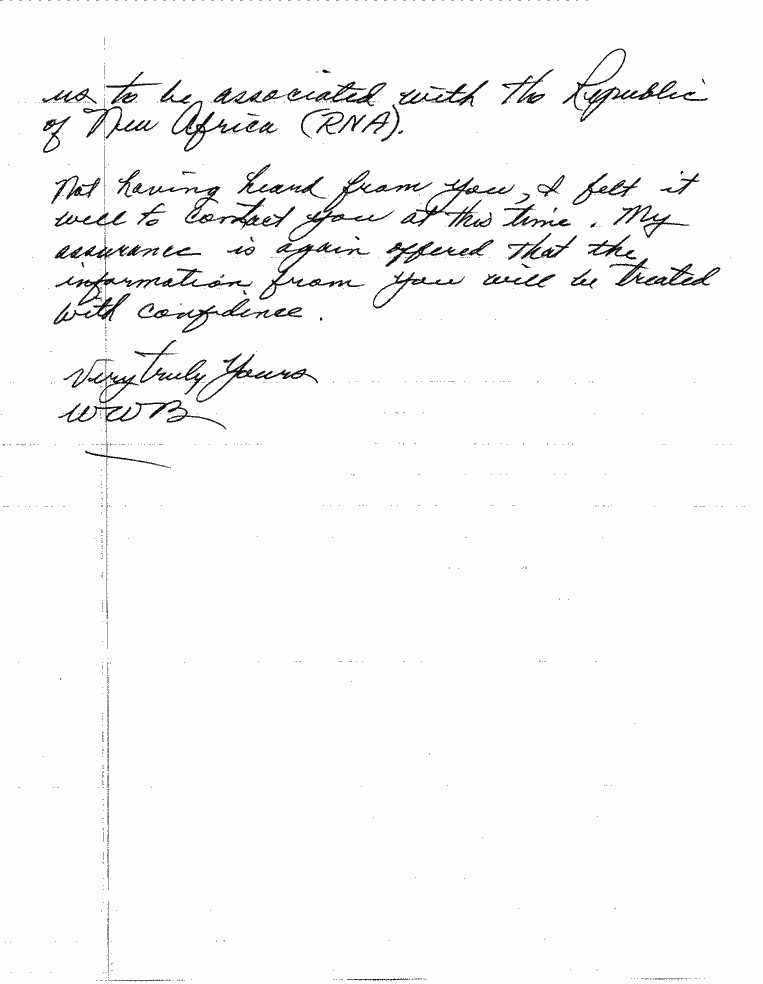 us to be associated with the Republic
of New Africa (RNA).
Not having heard from you, I felt it
well to contact you at this time. My
assurance is again offered that the
information from you will be treated
with confidence.
Very truly yours
WWB